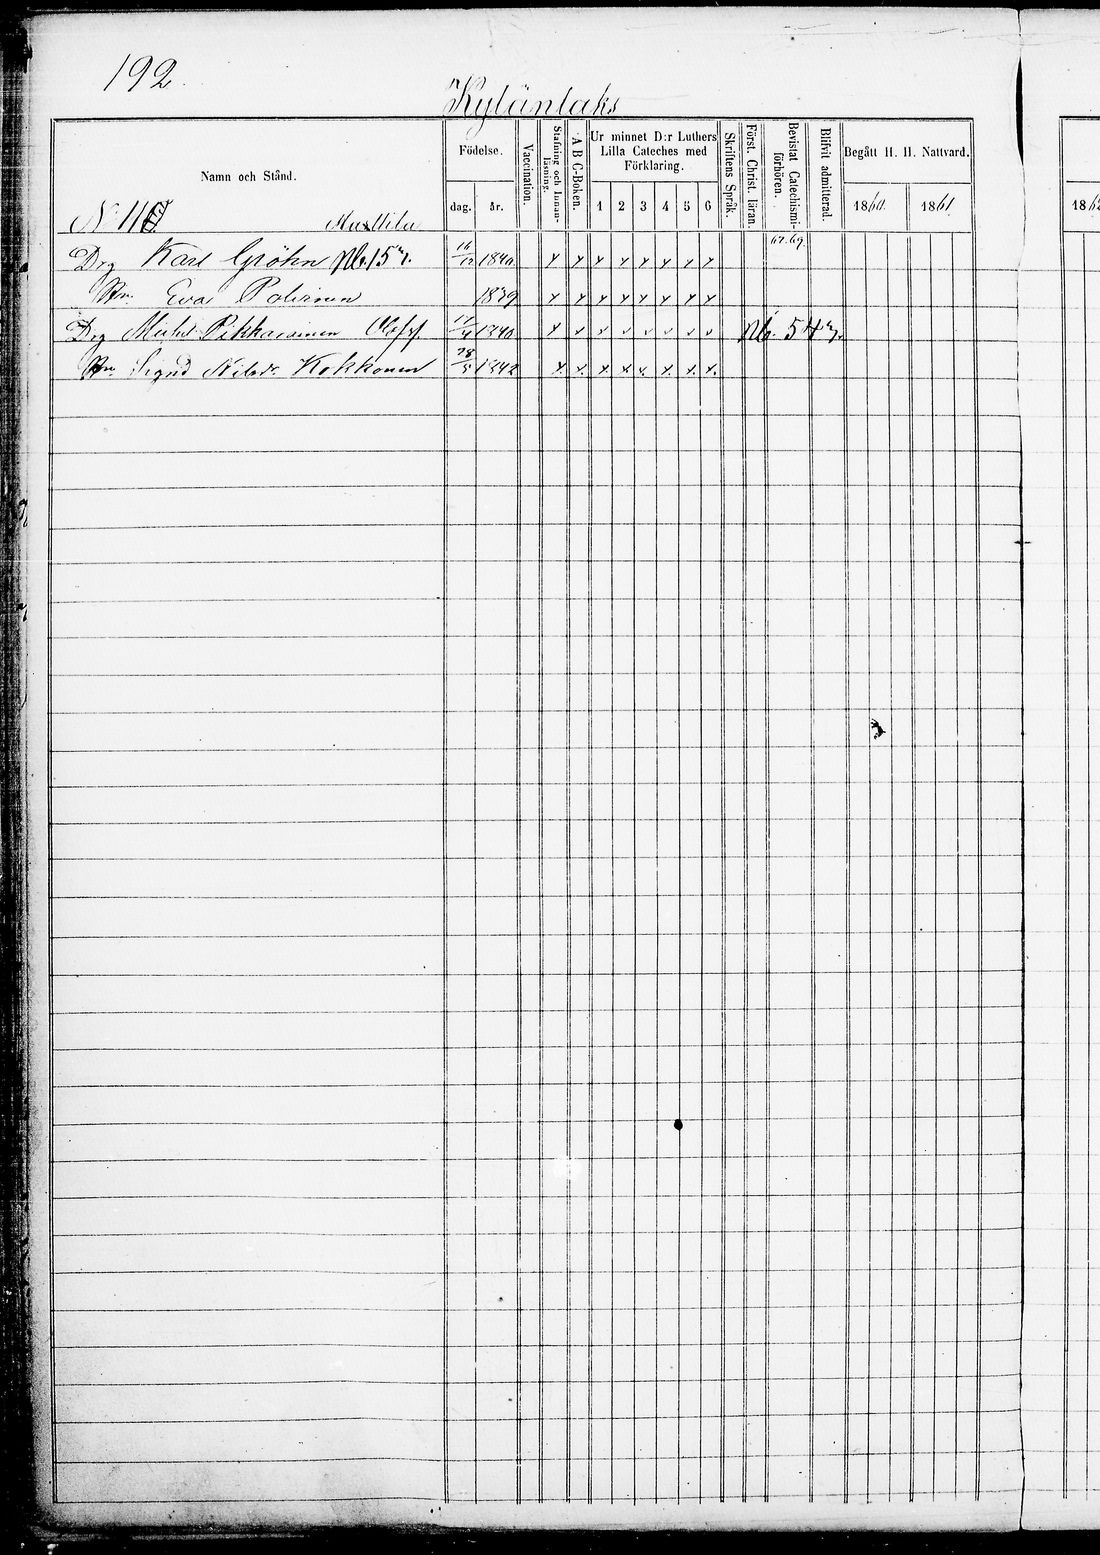 192.
Kylänlaks
Namn och Stånd.
Födelse.
dag. år.
Vaccination.
Stafning och Innan-läsning.
A B C-Boken.
Ur minnet D:r Luthers
Lilla Cateches med
Förklaring.
1 2 3 4 5 6
Skriftens Språk.
Först. Christ. läran.
Bevistat Catechismi-förhören.
Blifvit admitterad.
Begått H. H. Nattvard.
1860. 1861.
186
N 110 Muttila
67. 69.
Drg Karl Gröhn 16/12 1840 x x x x x x x x
Hu Eva 1839 x x x x x x x x
Drg Pikkarainen 1840 x x x v v v v v 54
Hu Kokkonen 28/5 1842 x x x x x x x x